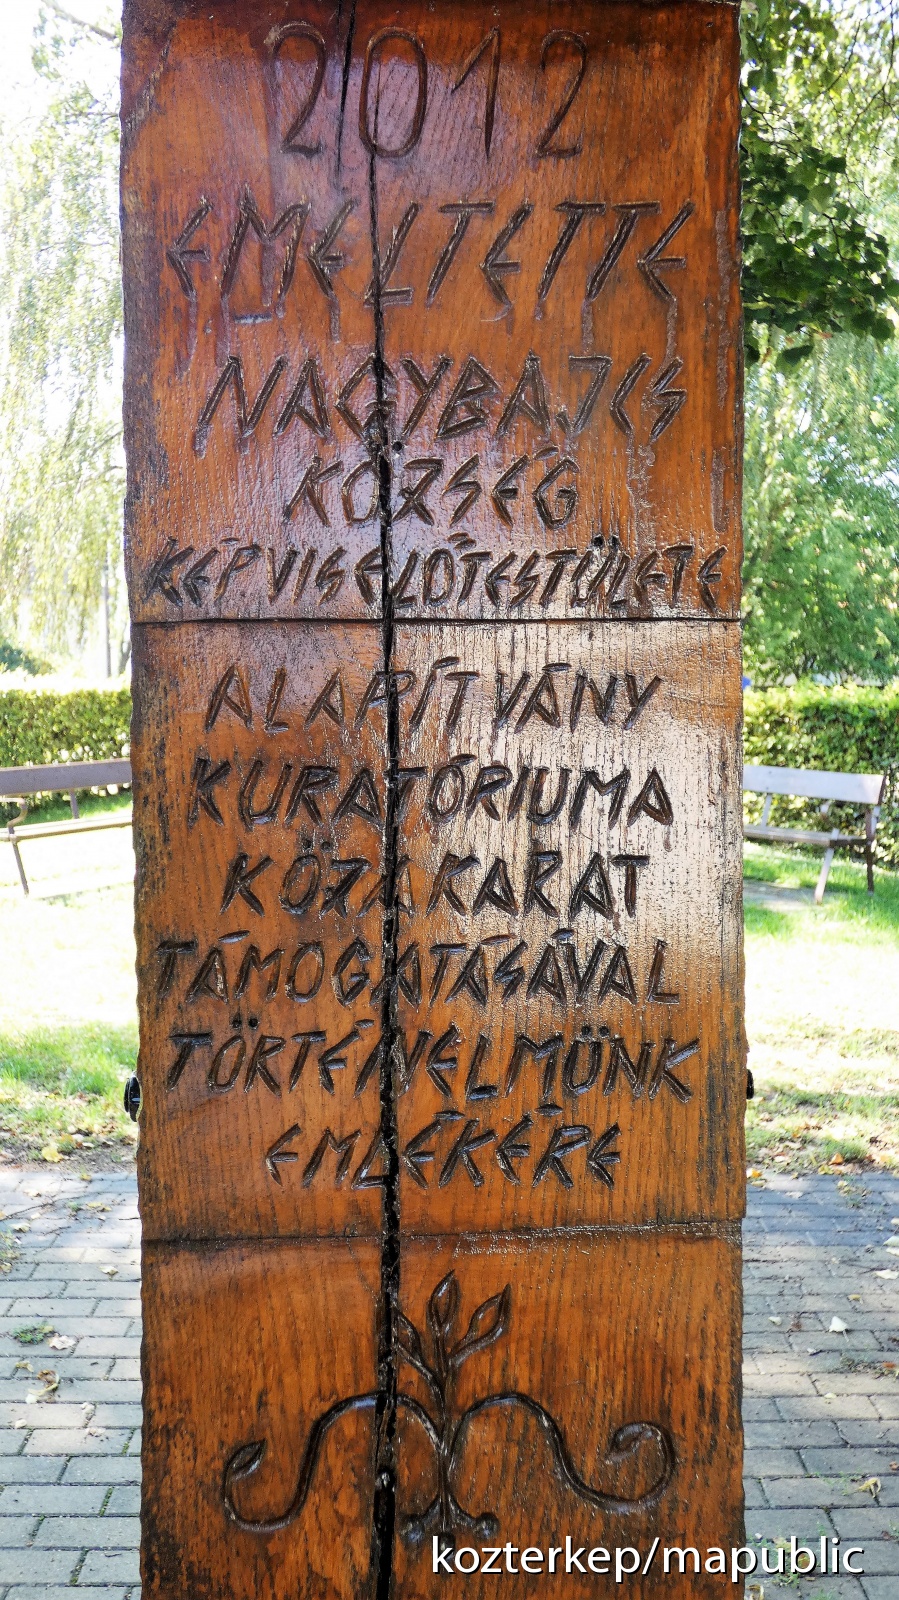 2012
EMELTETTE
NAGYBAJCS
KÖZSÉG
KÉPVISELŐTESTÜLETE
ALAPÍTVÁNY
KURATÓRIUMA
KÖZAKARAT
TÁMOGATÁSÁVAL
TÖRTÉNELMÜNK
EMLÉKÉRE
kozterkep/mapublic